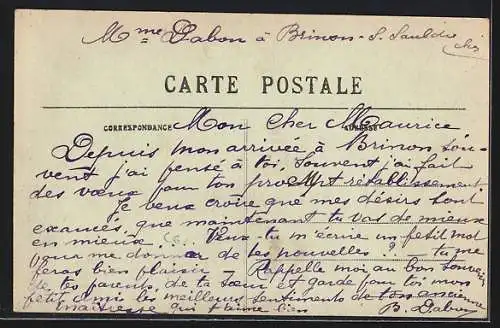 Mme Dabon à Brinon-S. Sauldre
cher
CARTE POSTALE
CORRESPONDANCE
ADRESSE
Mon cher Maurice
Depuis mon arrivée à Brinon sou-
vent j'ai pensé à toi, souvent j'ai fait
des vœux pour ton prompt rétablissement
Je veux croire que mes désirs sont
exaucés, que maintenant tu vas de mieux
en mieux. Veux tu m'écrire un petit mot
pour me donner de tes nouvelles ?? tu me
feras bien plaisir. Rappelle moi au bon souvenir
de tes parents, de ta sœur et garde pour toi mon
petit ami les meilleurs sentiments de ton ancienne
maîtresse qui t'aime bien
B. Dabon